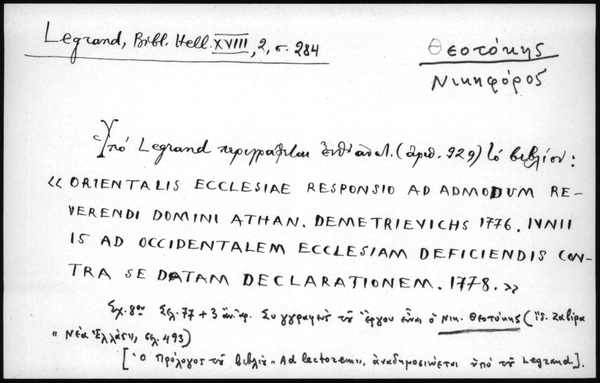 Legrand, Bibl. Hell. XVIII, 2, σ. 284
Θεοτόκης
Νικηφόρος
Ὑπό Legrand περιγράφεται ἐνθ' ἀν. (ἀριθ. 929) τό βιβλίον:
« ORIENTALIS ECCLESIAE RESPONSIO AD ADMODUM RE-
VERENDI DOMINI ATHAN. DEMETRIEVICHS 1776. IVNII
15 AD OCCIDENTALEM ECCLESIAM DEFICIENDIS CON-
TRA SE DATAM DECLARATIONEM. 1778. »
Σχ. 8ον Σελ. 77 + 3 Συγγραφεύς τοῦ ἔργου εἶναι ὁ Νικ. Θεοτόκης (ἰδ. Ζαβίρα
« Νέα Ἑλλάς», σελ. 493)
[Ὁ Πρόλογος τοῦ βιβλίου «Ad lectorem», ἀναδημοσιεύεται ὑπό τοῦ Legrand].